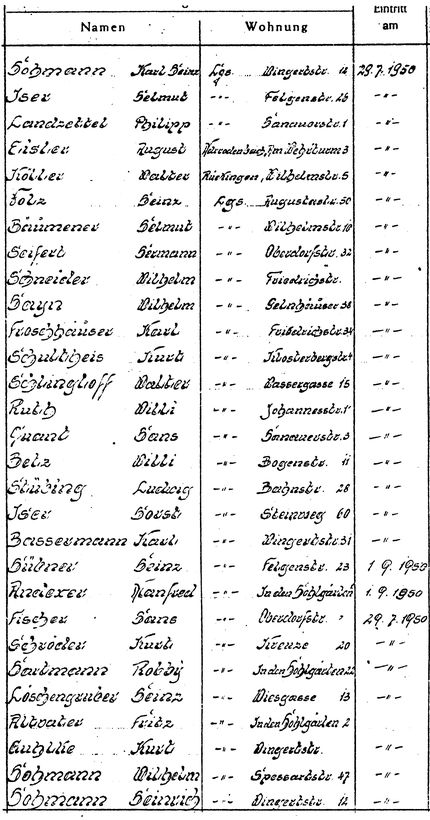 Namen Wohnung Eintritt am
Hohmann Karl Heinz Lgs. Wingertstr. 12 29.7.1950
Iser Helmut -"- Felgenstr. 26 -"-
Landzettel Philipp -"- Hanauerstr. 1 -"-
Eisler August Marködenbuch, Am Wehrturm 3 -"-
Koller Walter Rückingen, Wilhelmstr. 5 -"-
Volz Heinz Lgs. Augustastr. 50 -"-
Bäumener Helmut -"- Wilhelmstr. 10 -"-
Seifert Hermann -"- Oberdorfstr. 32 -"-
Schneider Wilhelm -"- Friedrichstr. -"-
Hayn Wilhelm -"- Gelnhäuser 38 -"-
Froschhäuser Karl -"- Friedrichstr. 34 -"-
Schultheis Kurt -"- Klosterbergstr. 4 -"-
Schlinghoff Walter -"- Wassergasse 15 -"-
Ruth Willi -"- Johannesstr. 1 -"-
Quant Hans -"- Hanauerstr. 3 -"-
Belz Willi -"- Bogenstr. 11 -"-
Stübing Ludwig -"- Bahnstr. 28 -"-
Iser Horst -"- Steinweg 60 -"-
Bassermann Karl -"- Wingertstr. 31 -"-
Hübner Heinz -"- Felgenstr. 23 1.9.1950
Manfred -"- In den Hohlgärten 1.9.1950
Fischer Hans -"- Oberdorfstr. 29.7.1950
Schröder Kurt -"- Kreuze 20 -"-
Hartmann Robby -"- In den Hohlgärten 22 -"-
Löschengruber Heinz -"- Wiesgasse 13 -"-
Altvater Fritz -"- In den Hohlgärten 2
Kurt -"- Wingertstr. -"-
Hohmann Wilhelm -"- Spessartstr. 47 -"-
Hohmann Heinrich -"- Wingertstr. 12 -"-